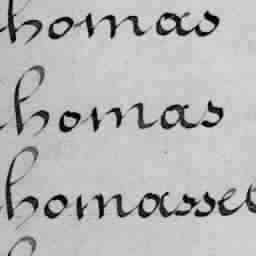 homas
homas
homasset